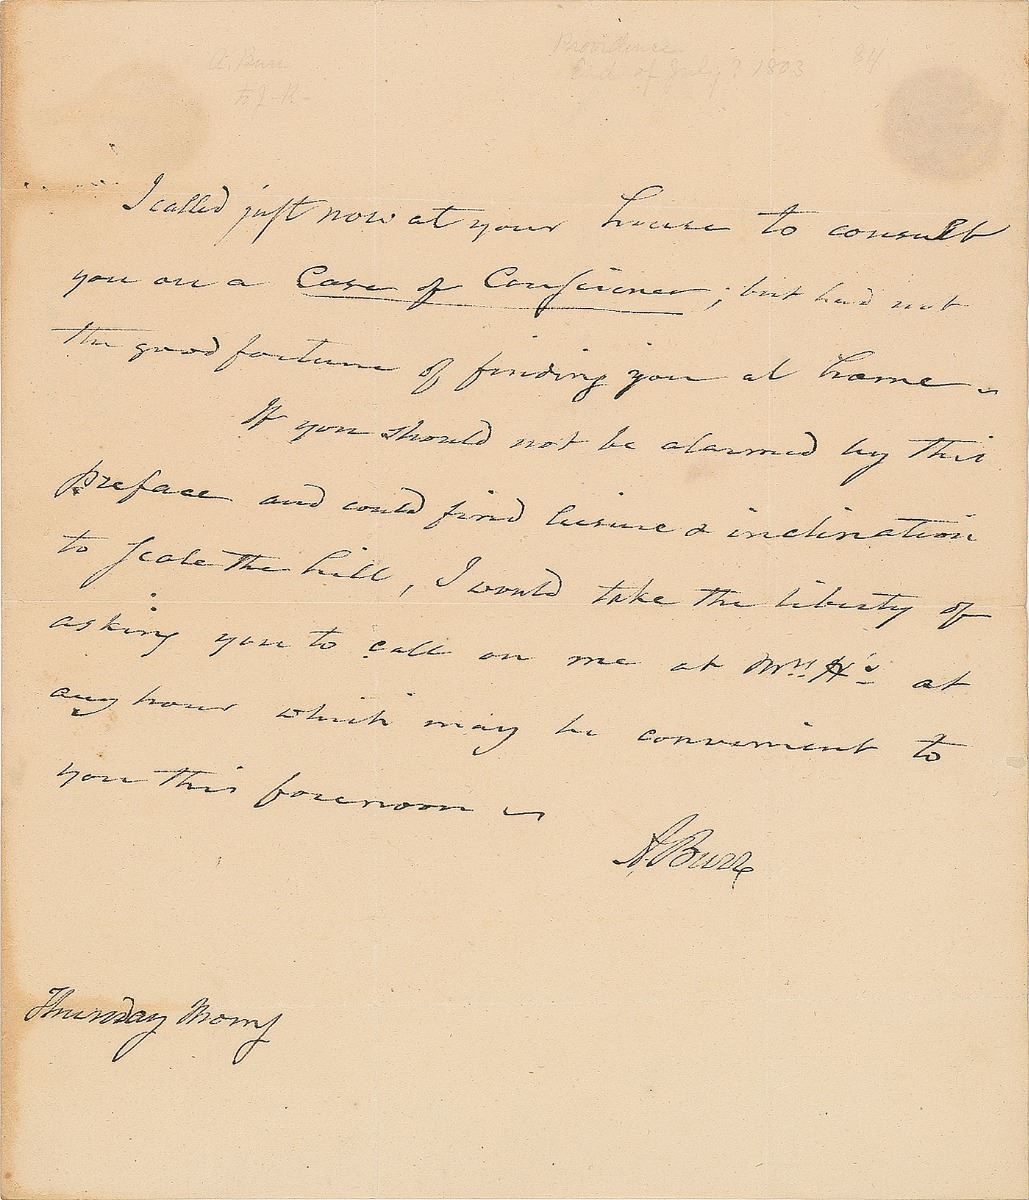 A. Burr
to J. R-
Providence
End of July? 1803
84
I called just now at your house to consult
you on a Case of Conscience; but had not
the good fortune of finding you at home -
If you should not be alarmed by this
preface and could find leisure & inclination
to scale the hill, I would take the liberty of
asking you to call on me at Mrs. H's at
any hour which may be convenient to
you this forenoon
A. Burr
Thursday Morng